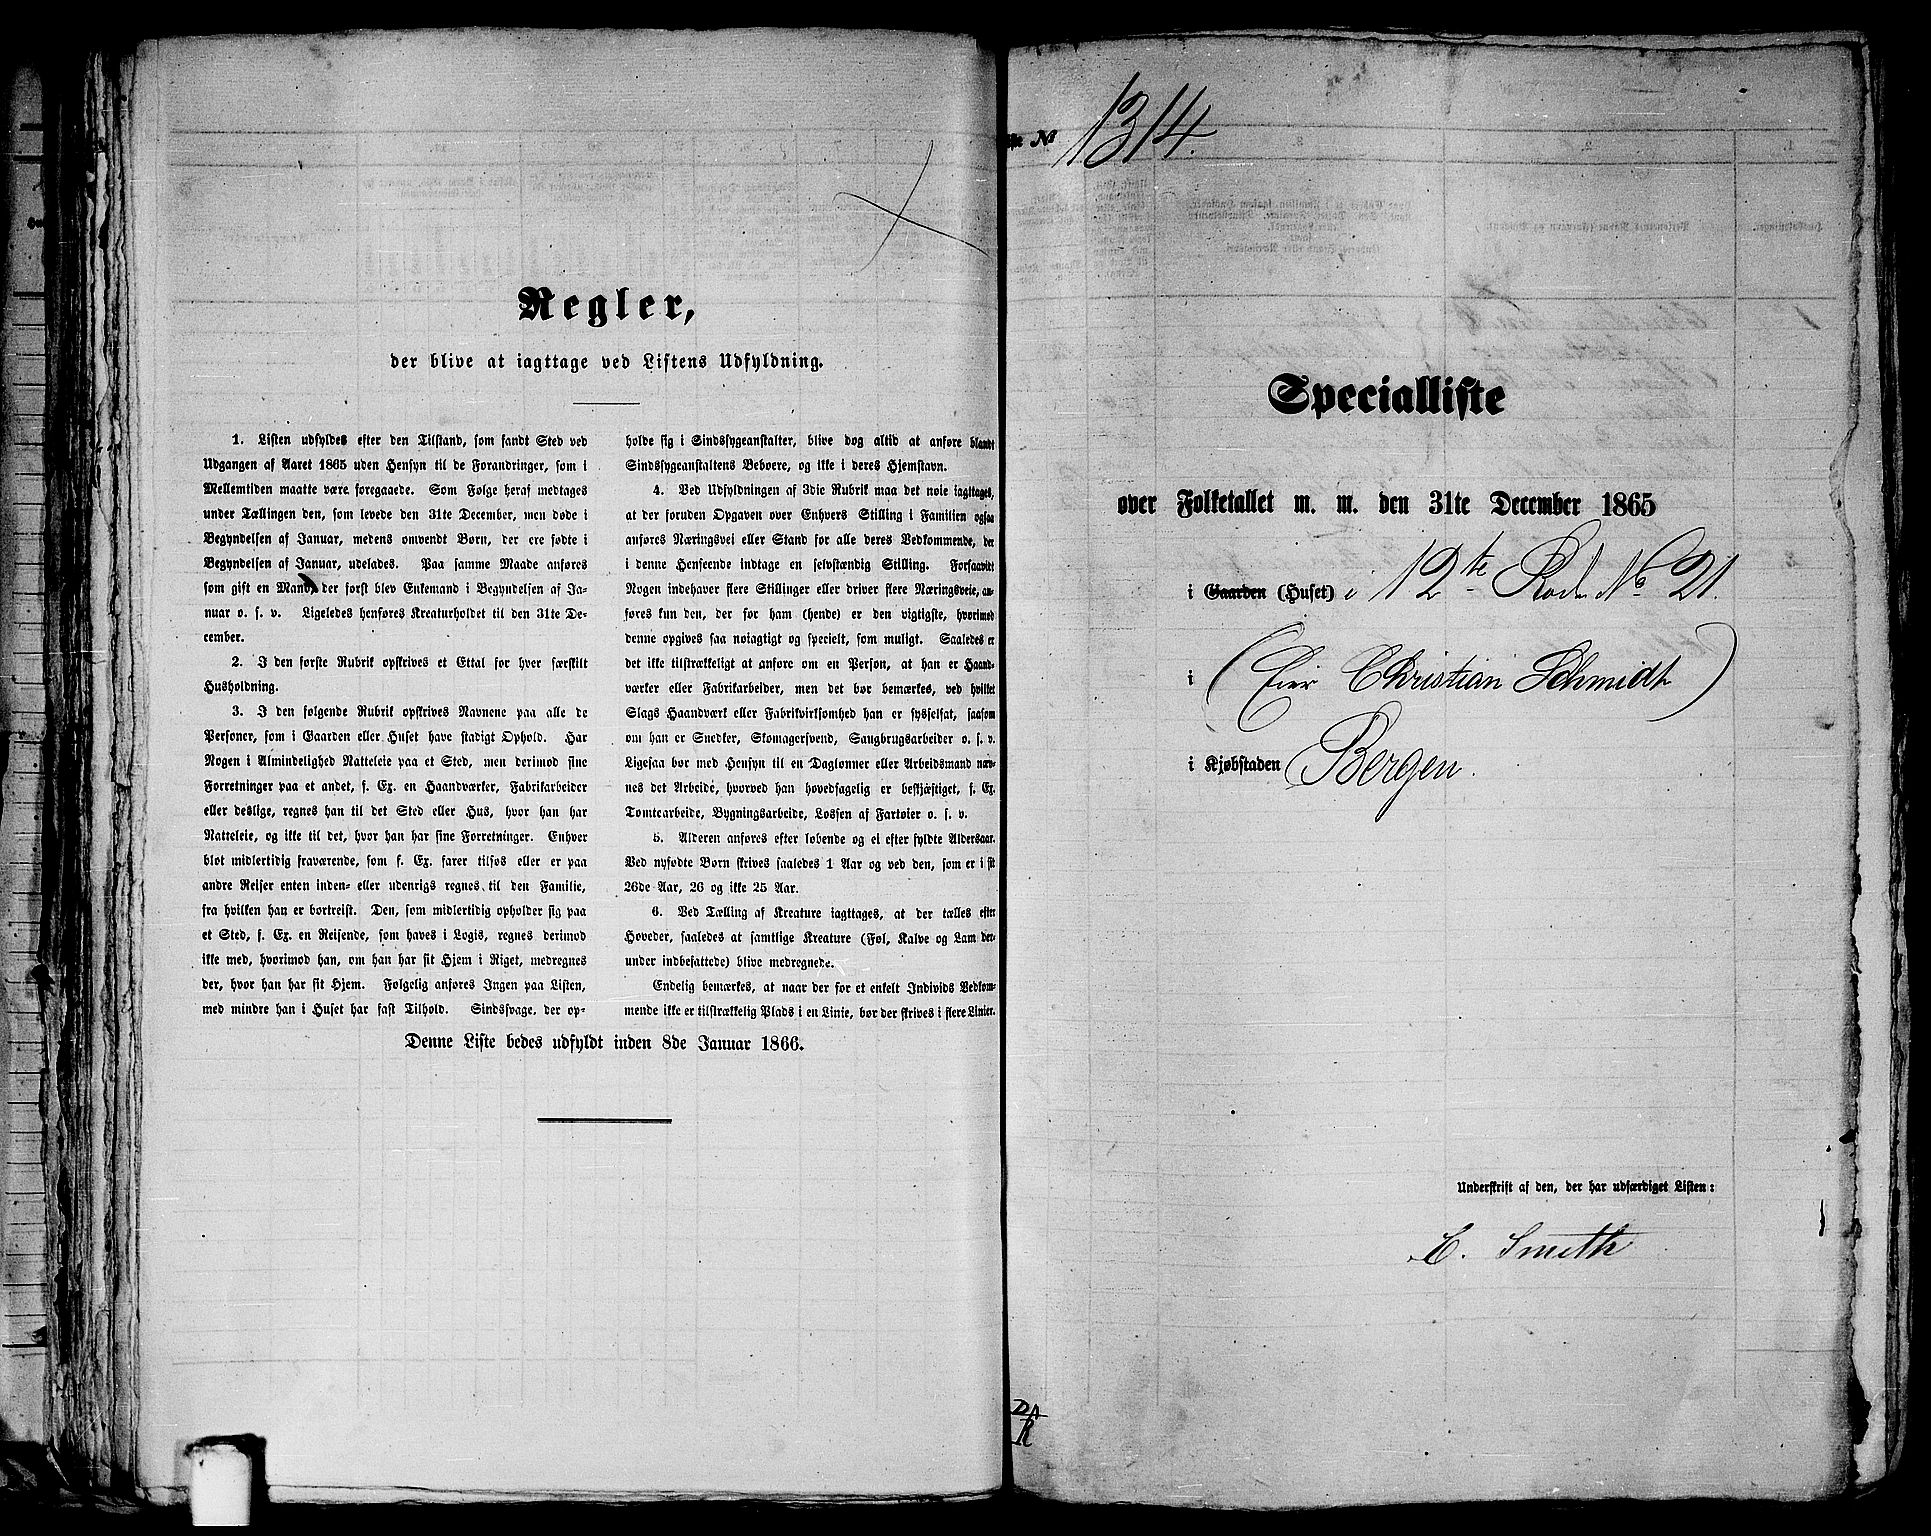 Regler,
der blive at iagttage ved Listens Udfyldning.
1. Listen udfyldes efter den Tilstand, som fandt Sted ved
Udgangen af Aaret 1865 uden Hensyn til de Forandringer, som i
Mellemtiden maatte være foregaaede. Som Følge heraf medtages
under Tællingen den, som levede den 31te December, men døde i
Begyndelsen af Januar, medens omvendt Børn, der ere fødte i
Begyndelsen af Januar, udelades. Paa samme Maade anføres
som gift en Mand, der først blev Enkemand i Begyndelsen af Ja-
nuar o. s. v. Ligeledes henføres Kreaturholdet til den 31te De-
cember.
2. I den første Rubrik opskrives et Ettal for hver særskilt
Husholdning.
3. I den følgende Rubrik opskrives Navnene paa alle de
Personer, som i Gaarden eller Huset have stadigt Ophold. Har
Nogen i Almindelighed Natteleie paa et Sted, men derimod sine
Forretninger paa et andet, f. Ex. en Haandværker, Fabrikarbeider
eller deslige, regnes han til det Sted eller Hus, hvor han har
Natteleie, og ikke til det, hvor han har sine Forretninger. Enhver
blot midlertidig fraværende, som f. Ex. farer tilsøs eller er paa
andre Reiser enten inden- eller udenrigs regnes til den Familie,
fra hvilken han er bortreist. Den, som midlertidig opholder sig paa
et Sted, f. Ex. en Reisende, som haves i Logis, regnes derimod
ikke med, hvorimod han, om han har sit Hjem i Riget, medregnes
der, hvor han har sit Hjem. Følgelig anføres Ingen paa Listen,
med mindre han i Huset har fast Tilhold. Sindssvage, der op-
holde sig i Sindssygeanstalter, blive dog altid at anføre blandt
Sindssygeanstaltens Beboere, og ikke i deres Hjemstavn.
4. Ved Udfyldningen af 3die Rubrik maa det nøie iagttages,
at der foruden Opgaven over Enhvers Stilling i Familien ogsaa
anføres Næringsvei eller Stand for alle deres Vedkommende, der
i denne Henseende indtage en selvstændig Stilling. Forsaavidt
Nogen indehaver flere Stillinger eller driver flere Næringsveie, an-
føres kun den, der for ham (hende) er den vigtigste, hvorimod
denne opgives saa nøiagtigt og specielt, som muligt. Saaledes er
det ikke tilstrækkeligt at anføre om en Person, at han er Haand-
værker eller Fabrikarbeider, men det bør bemærkes, ved hvilket
Slags Haandværk eller Fabrikvirksomhed han er sysselsat, saasom
om han er Snedker, Skomagersvend, Saugbrugsarbeider o. s. v.
Ligesaa bør med Hensyn til en Daglønner eller Arbeidsmand næv-
nes det Arbeide, hvorved han hovedsagelig er beskjæftiget, f. Ex.
Tomtearbeide, Bygningsarbeide, Lossen af Fartøier o. s. v.
5. Alderen anføres efter løbende og ei efter fyldte Aldersaar.
Ved nyfødte Børn skrives saaledes 1 Aar og ved den, som er i sit
26de Aar, 26 og ikke 25 Aar.
6. Ved Tælling af Kreature iagttages, at der tælles efter
Hoveder, saaledes at samtlige Kreature (Føl, Kalve og Lam der-
under indbefattede) blive medregnede.
Endelig bemærkes, at naar der for et enkelt Individs Vedkom-
mende ikke er tilstrækkelig Plads i en Linie, bør der skrives i flere Linier.
Denne Liste bedes udfyldt inden 8de Januar 1866.
No 1314.
Specialliste
over Folketallet m. m. den 31te December 1865
i Gaarden (Huset) i 12te Rode No 21.
i (Eier Christian Schmidt)
i Kjøbstaden Bergen.
Underskrift af den, der har udfærdiget Listen:
C. Smith